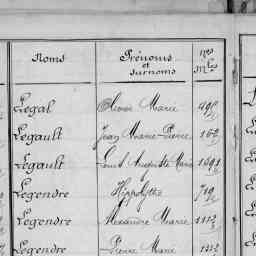 Noms Prénoms et surnoms Nos Mles
Légal Marie
Legault Jean Marie Pierre 162
Legault Louis Auguste Marie 1091
Legendre Hippolyte 719
Legendre Alexandre Marie 1113
Legendre Pierre Marie